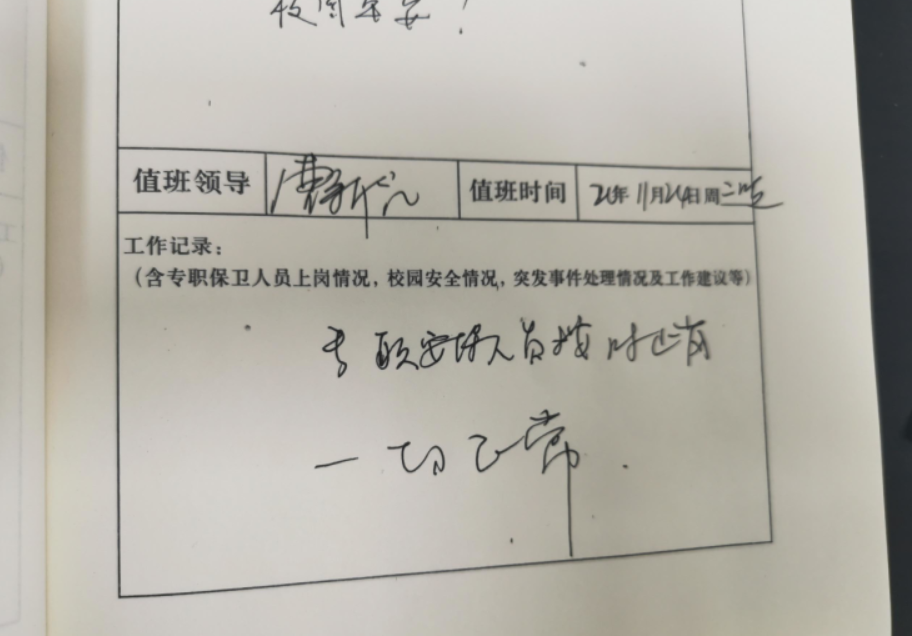 校园平安！
值班领导 曹 值班时间 24年11月24日周二晚
工作记录：
（含专职保卫人员上岗情况，校园安全情况，突发事件处理情况及工作建议等）
专职安保人员按时上岗
一切正常.